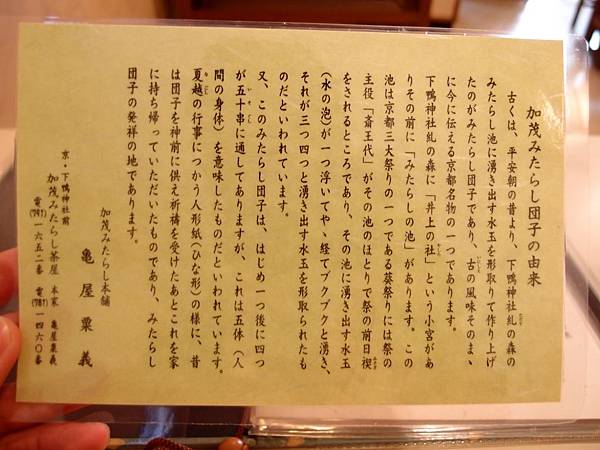 加茂みたらし団子の由来
古くは、平安朝の昔より、下鴨神社糺の森の
みたらし池に湧き出す水玉を形取りて作り上げ
たのがみたらし団子であり、古の風味そのまゝ
に今に伝える京都名物の一つであります。
下鴨神社糺の森に「井上の社」という小宮があ
りその前に「みたらしの池」があります。この
池は京都三大祭りの一つである葵祭りには祭の
主役「斎王代」がその池のほとりで祭の前日禊
をされるところであり、その池に湧き出す水玉
(水の泡)が一つ浮いてやゝ経てブクブクと湧き、
それが三つ四つと湧き出す水玉を形取られたも
のだといわれています。
又、このみたらし団子は、はじめ一つ後に四つ
が五十串に通してありますが、これは五体(人
間の身体)を意味したものだといわれています。
夏越の行事につかう人形紙(ひな形)の様に、昔
は団子を神前に供え祈祷を受けたあとこれを家
に持ち帰っていただいたものであり、みたらし
団子の発祥の地であります。
加茂みたらし本舗
亀屋粟義
京・下鴨神社前
加茂みたらし茶屋 本家 亀屋粟義
電(791)一六五二番 電(781)一四六〇番